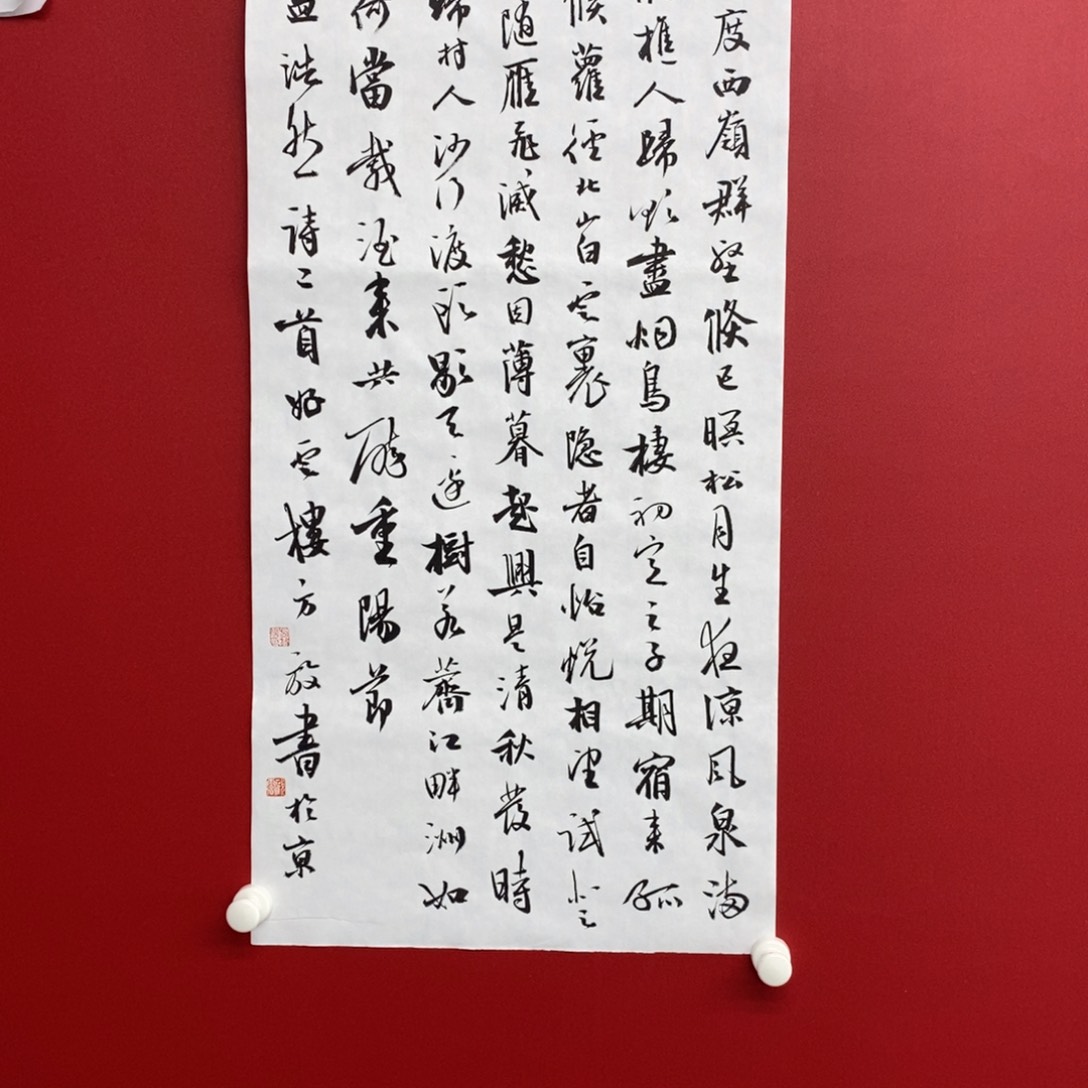 度西嶺群壑倏已暝松月生夜涼風泉滿
樵人歸欲盡烟鳥棲初定之子期宿來孤
候蘿徑北山白雲裏隱者自怡悅相望試登
隨雁飛滅愁因薄暮起興是清秋發時
歸村人沙行渡頭歇天邊樹若薺江畔洲如
何當載酒來共醉重陽節
孟浩然詩二首好雲樓方書於京